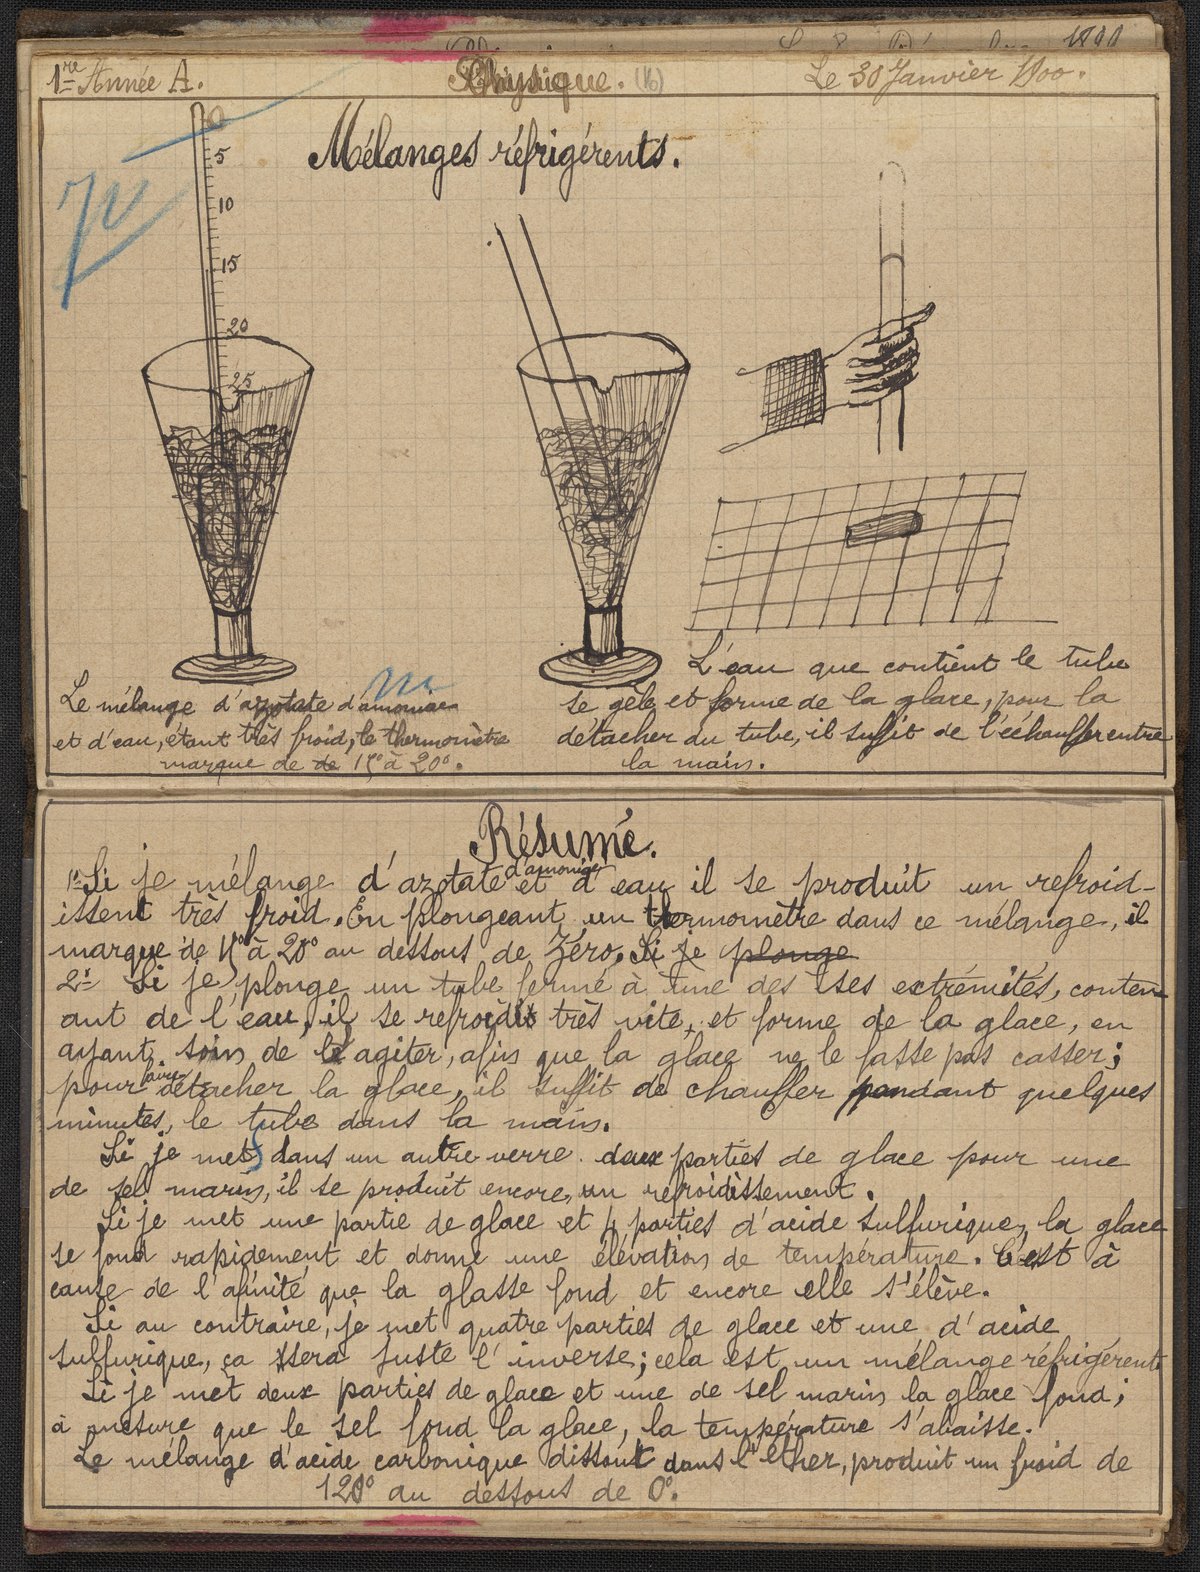 1re Année A.
Physique. (16)
Le 30 Janvier 1900.
Mélanges réfrigérents.
0
5
10
15
20
25
Le mélange d'azotate d'amoniac
et d'eau, étant très froid, le thermomètre
marque de de 15° à 20°.
L'eau que contient le tube
se gèle et forme de la glace, pour la
détacher du tube, il suffit de l'échauffer entre
la main.
Résumé.
1º Si je mélange d'azotate d'amoniac et d'eau il se produit un refroid-
issent très froid. En plongeant un thermomètre dans ce mélange, il
marque de 15° à 20° au dessous de Zéro. Si je plonge
2º Si je plonge un tube fermé à une des ses extrémités, conten-
ant de l'eau, il se refroidit très vite, et forme de la glace, en
ayant soin de l'agiter, afin que la glace ne le fasse pas casser;
pour faire détacher la glace, il suffit de chauffer pendant quelques
minutes, le tube dans la main.
Si je mets dans un autre verre deux parties de glace pour une
de sel marin, il se produit encore, un refroidissement.
Si je met une partie de glace et 4 parties d'acide sulfurique, la glace
se fond rapidement et donne une élévation de température. C'est à
cause de l'afinité que la glasse fond et encore elle s'élève.
Si au contraire, je met quatre parties de glace et une d'acide
sulfurique, ça sera juste l'inverse; cela est un mélange réfrigérent
Si je met deux parties de glace et une de sel marin la glace fond;
à mesure que le sel fond la glace, la température s'abaisse.
Le mélange d'acide carbonique dissout dans l'éther, produit un froid de
120° au dessous de 0°.